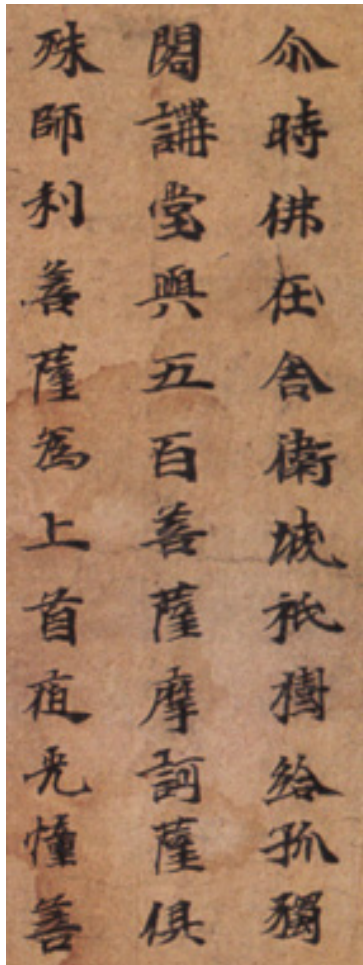 尒時佛在舍衛城祇樹給孤獨
閣講堂與五百菩薩摩訶薩俱
殊師利菩薩為上首夜光憧菩